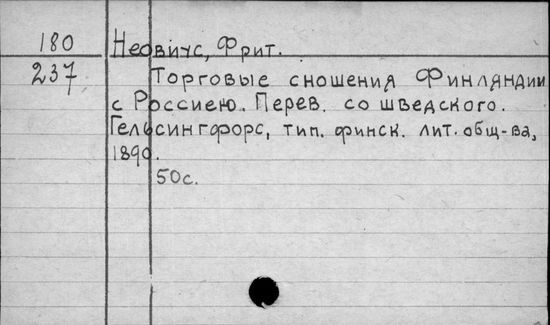 180 Неовиус, Фрит.
237 Торговые сношения Финляндии
с Россиею. Перев. со шведского.
Гельсингфорс, тип. финск. лит. общ-ва,
1890.
50с.